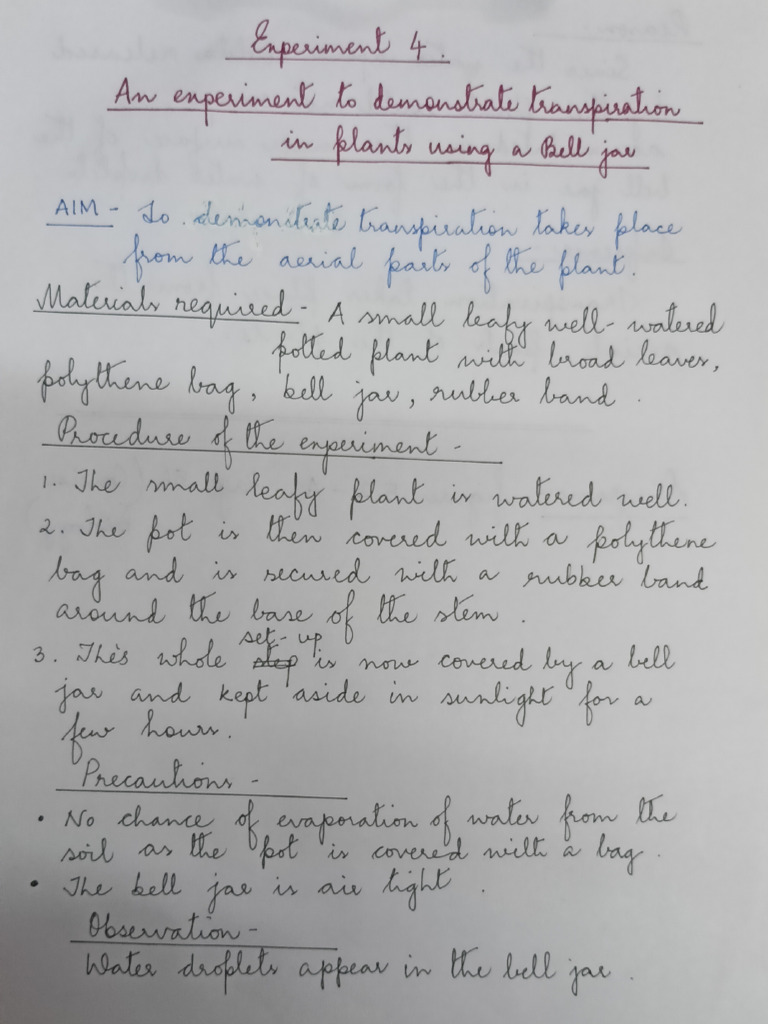 Experiment 4.
An experiment to demonstrate transpiration
in plants using a Bell jar
AIM - To demonstrate transpiration takes place
from the aerial parts of the plant.
Materials required - A small leafy well-watered
potted plant with broad leaves,
polythene bag, bell jar, rubber band.
Procedure of the experiment -
1. The small leafy plant is watered well.
2. The pot is then covered with a polythene
bag and is secured with a rubber band
around the base of the stem.
set-up
3. This whole step is now covered by a bell
jar and kept aside in sunlight for a
few hours.
Precautions -
• No chance of evaporation of water from the
soil as the pot is covered with a bag.
• The bell jar is air tight.
Observation -
Water droplets appear in the bell jar.